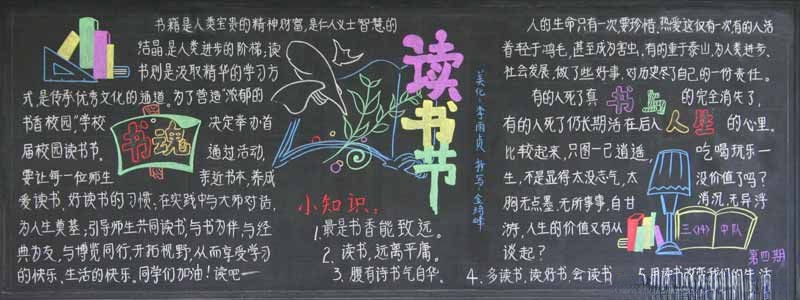 书籍是人类宝贵的精神财富,是仁人义士智慧的
结晶,是人类进步的阶梯;读
书则是汲取精华的学习方
式,是传承优秀文化的通道。为了营造"浓郁的
书香校园",学校 决定举办首
届校园读书节, 通过活动,
要让每一位师生 亲近书本,养成
爱读书,好读书的习惯,在实践中与大师对话,
为人生奠基,引导师生共同读书,与书为伴,与经
典为友,与博览同行,开拓视野,从而享受学习
的快乐,生活的快乐。同学们加油!读吧——
书魂
读书节
美化:李雨贞 书写:金琦峰
小知识:
1.最是书香能致远。
2.读书,远离平庸。
3.腹有诗书气自华。
4.多读书,读好书,会读书
5.用读书改变我们的生活
人的生命只有一次要珍惜,热爱这仅有一次,有的人活
着轻于鸿毛,甚至成为害虫,有的重于泰山,为人类进步、
社会发展,做了些好事,对历史尽了自己的一份责任。
有的人死了真 书上 的完全消失了,
有的人死了仍长期活在后人 人生 的心里。
比较起来,只图一己逍遥, 吃喝玩乐一
生,不是显得太没志气,太 没价值了吗?
胸无点墨,无所事事,自甘 消沉,无异浮
游,人生的价值又何从
谈起?
三〈14〉 中队
第四期